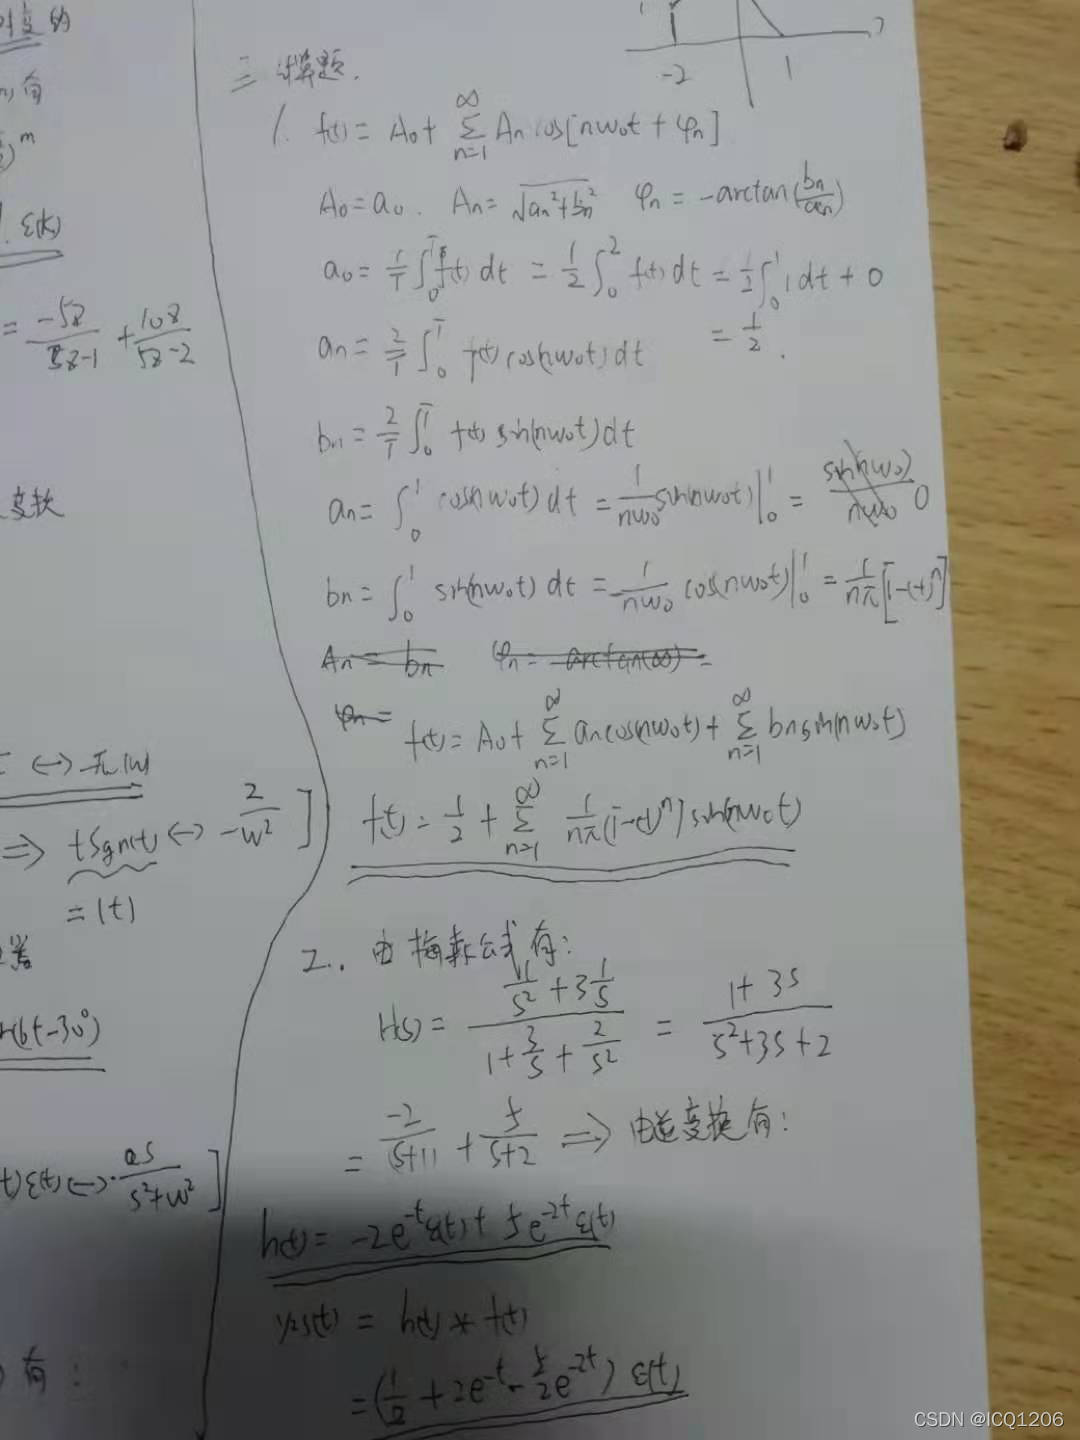 的
有
)^m
ε(k)
= -5z/(5z-1) + 10z/(5z-2)
变换
⇒ tSgn(t) ↔ -2/w² ]
= |t|
(6t-30°)
t)ε(t) ↔ as/(s²+w²) ]
有:
-2 1
三 计算题.
1. f(t) = A₀ + ∑_{n=1}^{∞} An cos[nw₀t + φn]
A₀ = a₀. An = √(an²+bn²) φn = -arctan(bn/an)
a₀ = 1/T ∫₀^T f(t) dt = 1/2 ∫₀² f(t) dt = 1/2 ∫₀¹ 1 dt + 0
= 1/2.
an = 2/T ∫₀^T f(t) cos(nw₀t) dt
bn = 2/T ∫₀^T f(t) sin(nw₀t) dt
an = ∫₀¹ cos(nw₀t) dt = 1/(nw₀) sin(nw₀t)|₀¹ = sin(nw₀)/(nw₀) 0
bn = ∫₀¹ sin(nw₀t) dt = -1/(nw₀) cos(nw₀t)|₀¹ = 1/(nπ) [1-(-1)^n]
An = bn φn = -arctan(∞) =
φn =
f(t) = A₀ + ∑_{n=1}^{∞} an cos(nw₀t) + ∑_{n=1}^{∞} bn sin(nw₀t)
f(t) = 1/2 + ∑_{n=1}^{∞} 1/(nπ) (1-(-1)^n] sin(nw₀t)
2.. 由梅森公式有:
H(s) = (1/s² + 3 1/s)/(1 + 3/s + 2/s²) = (1+3s)/(s²+3s+2)
= -2/(s+1) + 5/(s+2) ⇒ 由逆变换有:
h(t) = -2e^{-t}ε(t) + 5e^{-2t}ε(t)
yzs(t) = h(t) * f(t)
= (1/2 + 2e^{-t} - 5/2 e^{-2t}) ε(t)
CSDN @ICQ1206